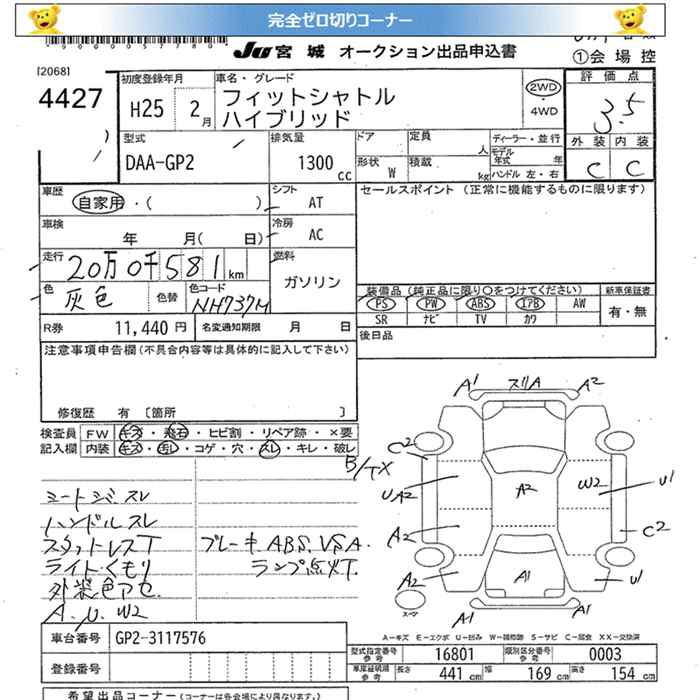 完全ゼロ切りコーナー
JU 宮城 オークション出品申込書
①会場控
[2068]
4427
初度登録年月
H25 2月
車名・グレード
フィットシャトル
ハイブリッド
2WD
・
4WD
評価点
3.5
外装 内装
C C
型式
DAA-GP2
排気量
1300 CC
ドア
定員
人
形状 W
積載
kg
ディーラー・並行
モデル年式 年
ハンドル 左・右
車歴
自家用・( )
シフト
AT
セールスポイント (正常に機能するものに限ります)
車検
年 月( 日)
冷房
AC
走行
20万0千581km
燃料
ガソリン
色
灰色
色替
色コード
NH737M
装備品 (純正品に限り○をつけてください)
PS PW ABS エアB AW
SR ナビ TV カワ
新車保証書
有・無
R券 11,440円
名変通知期限 月 日
後日品
注意事項申告欄(不具合内容等は具体的に記入して下さい)
修復歴 有 〔箇所 〕
検査員 FW キズ・飛石・ヒビ割・リペア跡・×要
記入欄 内装 キズ・汚レ・コゲ・穴・スレ・キレ・破レ
シートシミ スレ
ハンドルスレ
スタットレスT
ライトくもり
外装色アセ
A.U.W2
ブレーキ.ABS.VSA.
ランプ点灯.
A1 スリA A2
C2
B/TX
UA2
A2
W2
U1
A2
C2
A2
A1
U1
A1
A1
スペアー
A-キズ E-エクボ U-凹み W-補修跡 S-サビ C-腐食 XX-交換済
車台番号 GP2-3117576
登録番号
型式指定番号 参考 16801
類別区分番号 参考 0003
車庫証明用 参考 長さ 441 cm 幅 169 cm 高さ 154 cm
希望出品コーナー(コーナーは各会場により異なります。)